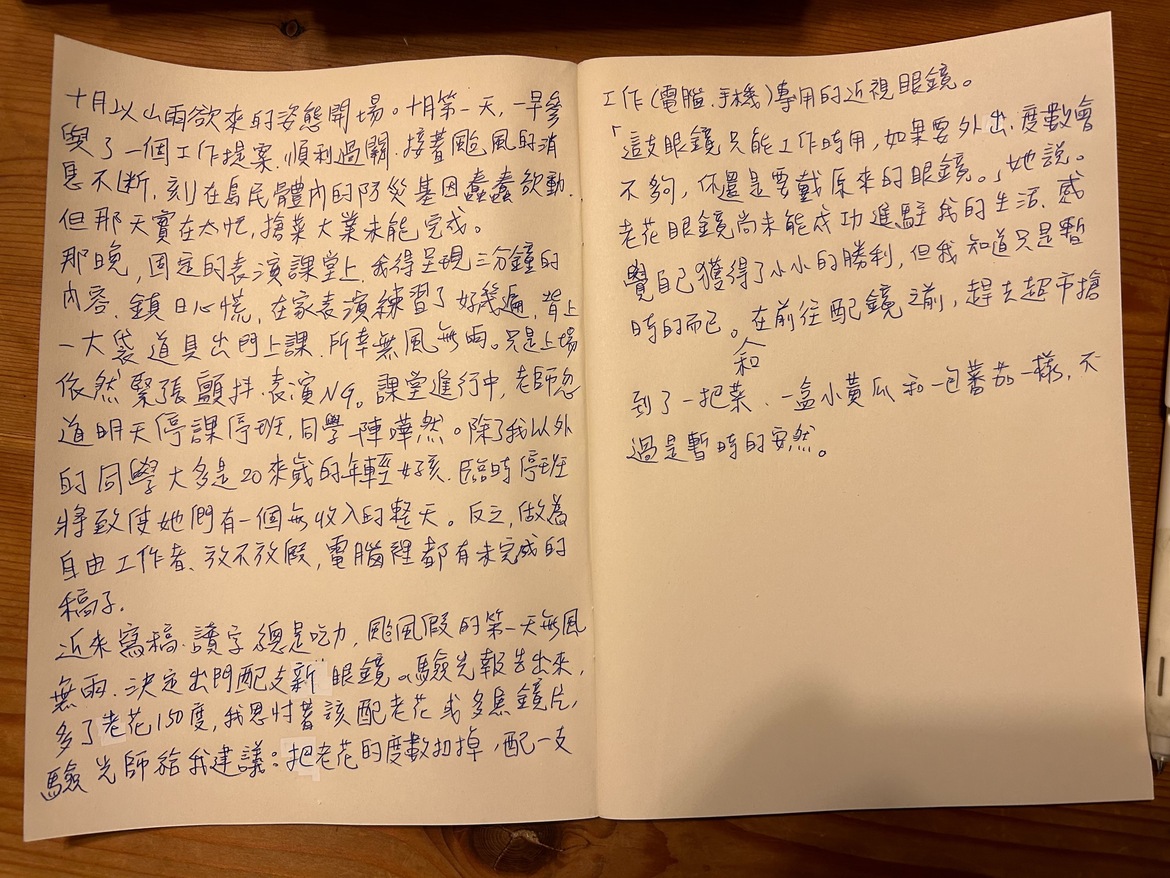 十月以山雨欲來的姿態開場。十月第一天,一早參
與了一個工作提案、順利過關、接著颱風的消
息不斷,刻在島民體內的防災基因蠢蠢欲動、
但那天實在太忙,搶菜大業未能完成。
那晚,固定的表演課堂上、我得呈現三分鐘的
內容、鎮日心慌,在家表演練習了好幾遍,背上
一大袋道具出門上課、所幸無風無雨。只是上場
依然緊張顫抖、表演NG。課堂進行中,老師忽
道明天停課停班,同學一陣嘩然。除了我以外
的同學大多是20來歲的年輕好孩、臨時停班
將致使她們有一個無收入的整天。反之,做為
自由工作者、放不放假,電腦裡都有未完成的
稿子.
近來寫稿、讀字總是吃力,颱風假的第一天無風
無雨、決定出門配支新眼鏡。驗光報告出來,
多了老花150度,我思忖著該配老花或多焦鏡片,
驗光師給我建議:把老花的度數扣掉,配一支
工作(電腦、手機)專用的近視眼鏡。
「這支眼鏡只能工作時用,如果要外出、度數會
不夠,你還是要戴原來的眼鏡。」她說。
老花眼鏡尚未能成功進駐我的生活、感
覺自己獲得了小小的勝利,但我知道只是暫
時的而已。在前往配鏡之前,趕去超市搶
和
到了一把菜、一盒小黃瓜和一包蕃茄一樣,不
過是暫時的安然。